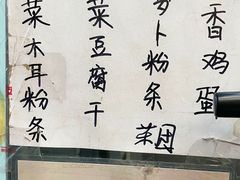 香鸡蛋
卜粉条
菜团
菜豆腐干
菜木耳粉条